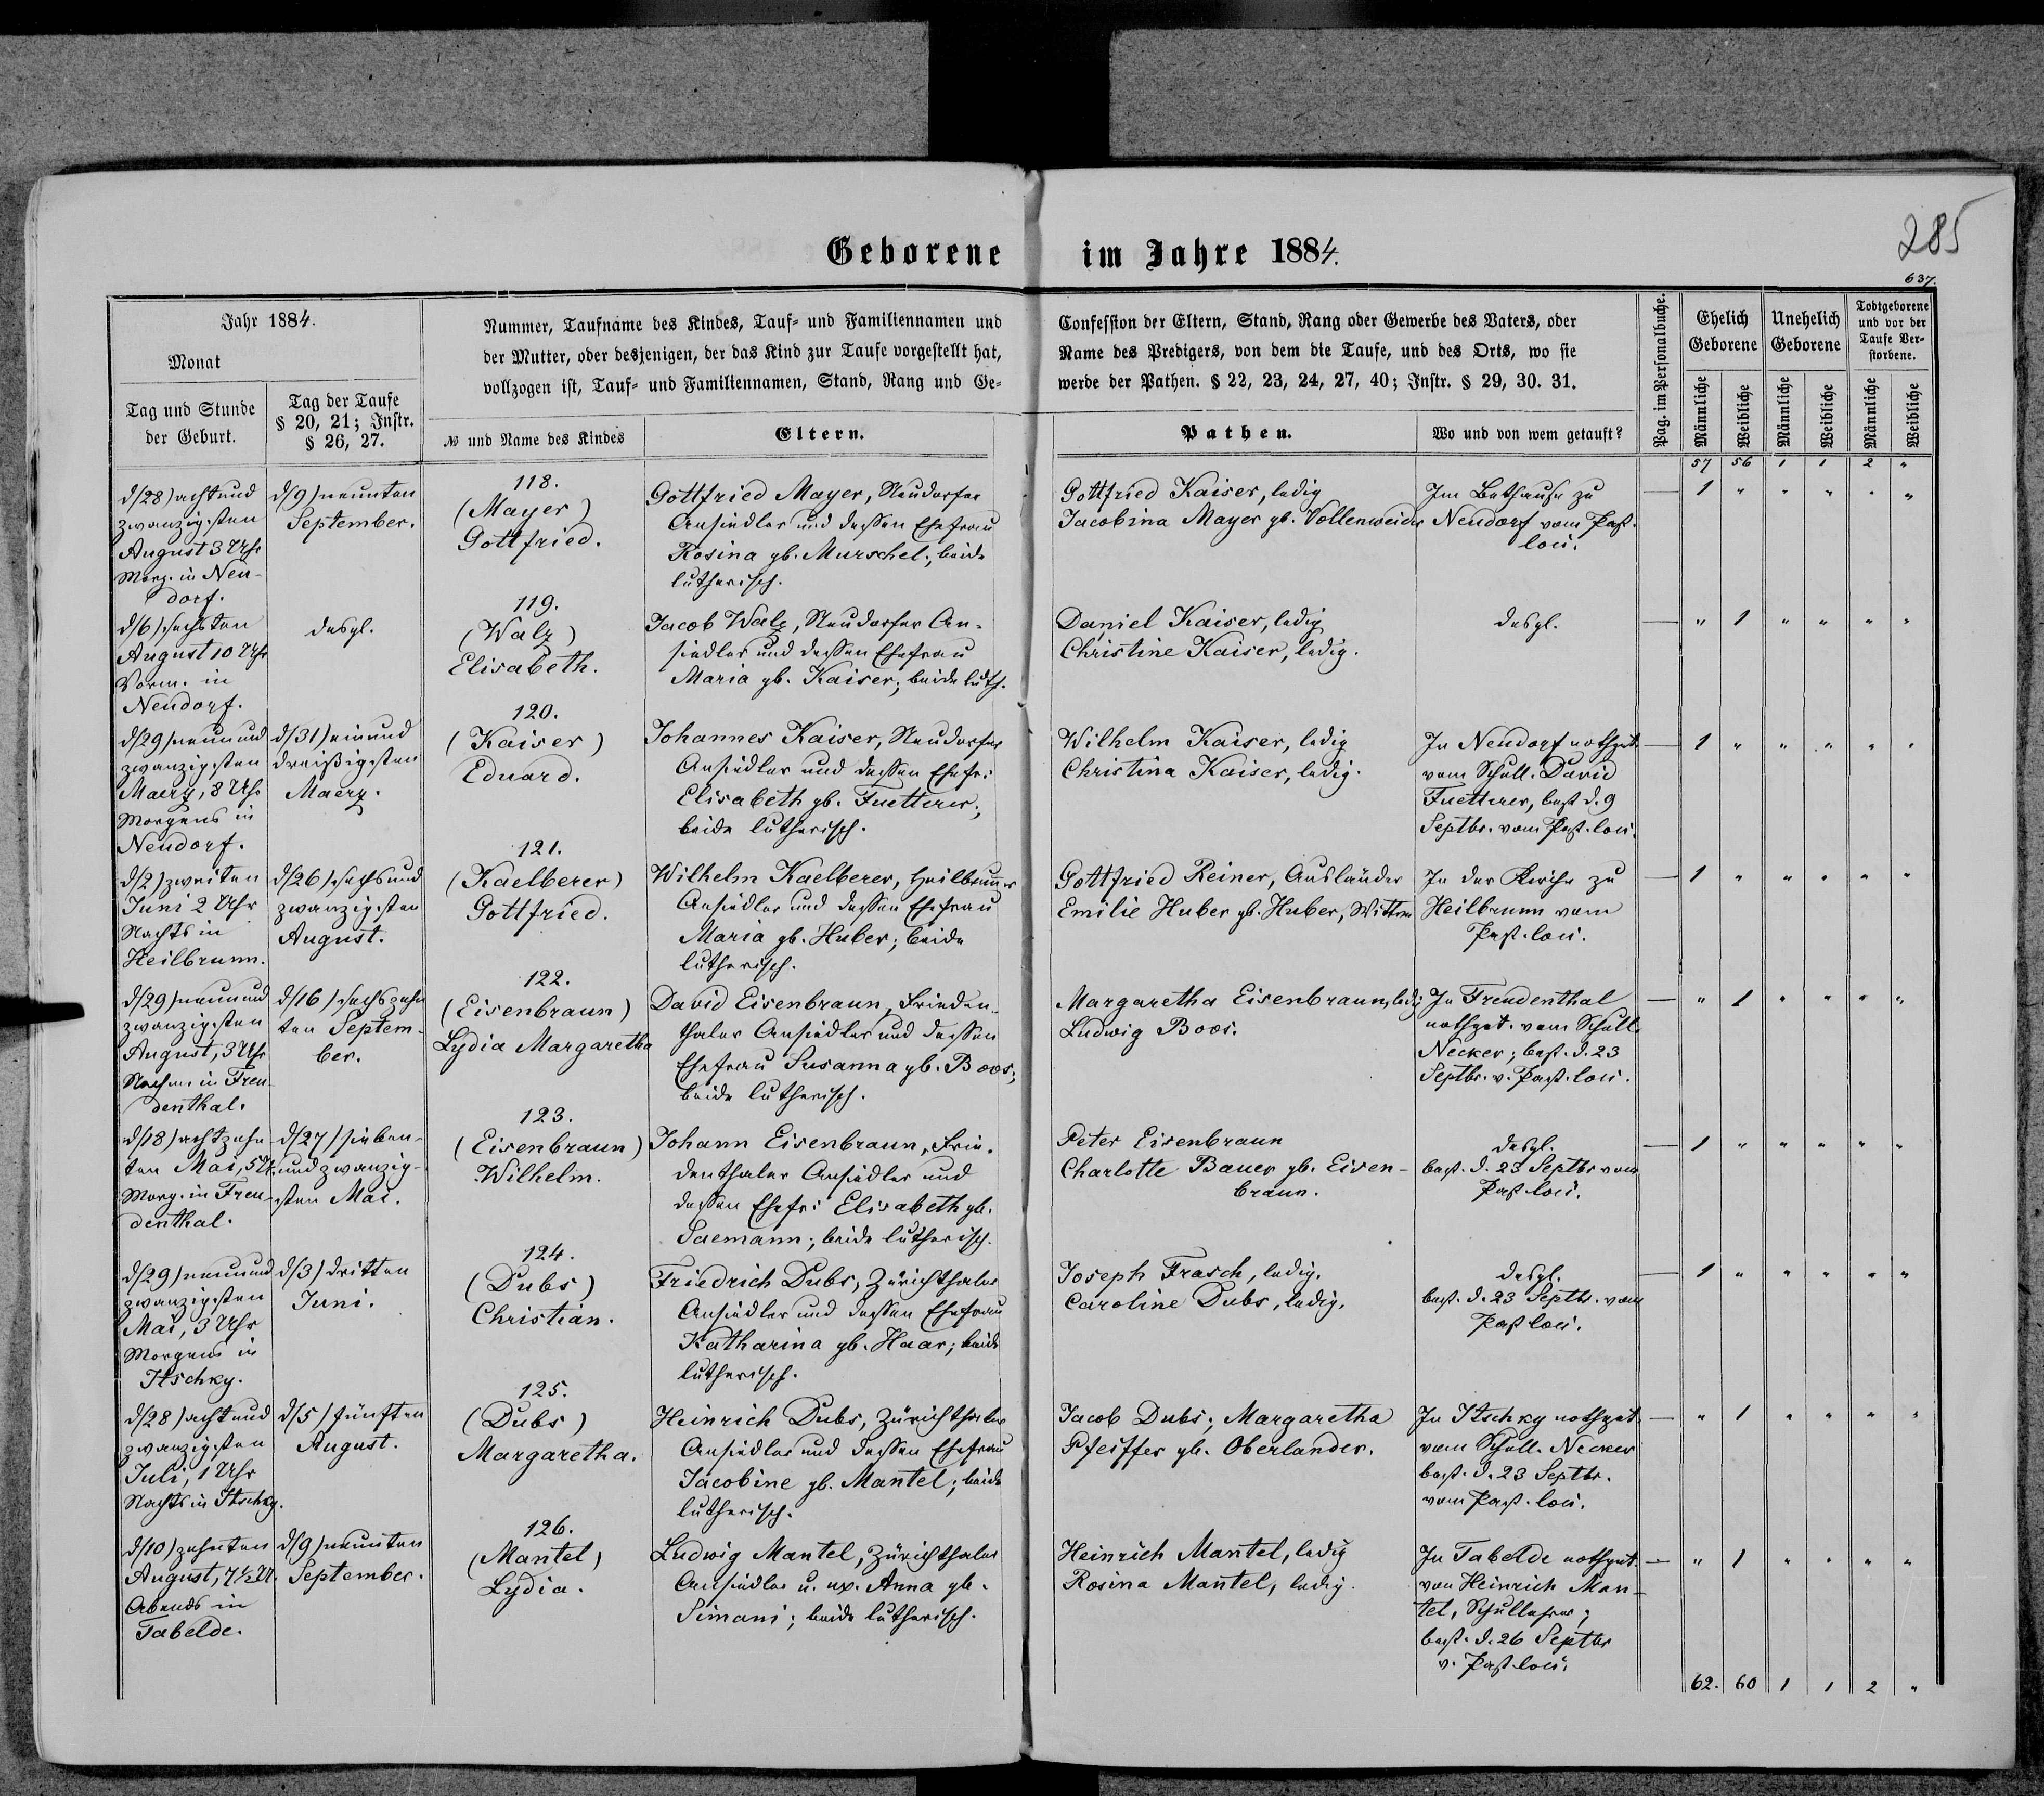 285
637.
Geborene im Jahre 1884.
Jahr 1884.
Monat
Tag und Stunde
der Geburt.
Tag der Taufe
§ 20, 21; Instr.
§ 26, 27.
Nummer, Taufname des Kindes, Tauf- und Familiennamen und
der Mutter, oder desjenigen, der das Kind zur Taufe vorgestellt hat,
vollzogen ist, Tauf- und Familiennamen, Stand, Rang und Ge-
№ und Name des Kindes
Eltern.
Confession der Eltern, Stand, Rang oder Gewerbe des Vaters, oder
Name des Predigers, von dem die Taufe, und des Orts, wo sie
werde der Pathen. § 22, 23, 24, 27, 40; Instr. § 29, 30. 31.
Pathen.
Wo und von wem getauft?
Pag. im Personalbuche.
Ehelich
Geborene
Unehelich
Geborene
Todtgeborene
und vor der
Taufe Ver-
storbene.
Männliche
Weibliche
Männliche
Weibliche
Männliche
Weibliche
57 56 1 1 2 "
d/28) achtund
zwanzigsten
August 3 Uhr
Morg. in Neu-
dorf.
d/9) neunten
September.
118.
(Mayer)
Gottfried.
Gottfried Mayer, Neudorfer
Ansiedler und dessen Ehefrau
Rosina gb. Murschel; beide
lutherisch.
Gottfried Kaiser, ledig
Jacobina Mayer gb. Vollenweider
Im Bethause zu
Neudorf vom Past.
loci.
— 1 " " " " "
d/6) sechsten
August 10 Uhr
Vorm. in
Neudorf.
desgl.
119.
(Walz)
Elisabeth.
Jacob Walz, Neudorfer An-
siedler und dessen Ehefrau
Maria gb. Kaiser; beide luth.
Daniel Kaiser, ledig
Christine Kaiser, ledig.
desgl.
— " 1 " " " "
d/29) neunund
zwanzigsten
Maerz, 8 Uhr
Morgens in
Neudorf.
d/31) einund
dreißigsten
Maerz.
120.
(Kaiser)
Eduard.
Johannes Kaiser, Neudorfer
Ansiedler und dessen Ehefr.
Elisabeth gb. Fuetterer;
beide lutherisch.
Wilhelm Kaiser, ledig
Christina Kaiser, ledig.
In Neudorf nothget.
vom Schull. David
Fuetterer, best d. 9
Septbr. vom Past. loci.
— 1 " " " " "
d/2) zweiten
Juni 2 Uhr
Nachts in
Heilbrunn.
d/26) sechsund
zwanzigsten
August.
121.
(Kaelberer)
Gottfried.
Wilhelm Kaelberer, Heilbrunner
Ansiedler und dessen Ehefrau
Maria gb. Huber; beide
lutherisch.
Gottfried Reiner, Ausländer
Emilie Huber gb. Huber, Wittwe
In der Kirche zu
Heilbrunn vom
Past. loci.
— 1 " " " " "
d/29) neunund
zwanzigsten
August, 3 Uhr
Nachm. in Freu-
denthal.
d/16) sechszehn
ten Septem-
ber.
122.
(Eisenbraun)
Lydia Margaretha
David Eisenbraun, Frieden-
thaler Ansiedler und dessen
Ehefrau Susanna gb. Boos;
beide lutherisch.
Margaretha Eisenbraun, ledig
Ludwig Boos.
In Freudenthal
nothget. vom Schull.
Necker; best. d. 23
Septbr. v. Past. loci.
— " 1 " " " "
d/18) achtzehn
ten Mai, 5 U.
Morg. in Freu-
denthal.
d/27) sieben-
undzwanzig-
sten Mai.
123.
(Eisenbraun)
Wilhelm.
Johann Eisenbraun, Frie-
denthaler Ansiedler und
dessen Ehefr. Elisabeth gb.
Saemann; beide lutherisch.
Peter Eisenbraun
Charlotte Bauer gb. Eisen-
braun.
desgl.
best. d. 23 Septbr vom
Past loci.
— 1 " " " " "
d/29) neunund
zwanzigsten
Mai, 3 Uhr
Morgens in
Itschky.
d/3) dritten
Juni.
124.
(Dubs)
Christian.
Friedrich Dubs, Zürichthaler
Ansiedler und dessen Ehefrau
Katharina gb. Haar; beide
lutherisch.
Joseph Frasch, ledig.
Caroline Dubs, ledig.
desgl.
best. d. 23 Septbr. vom
Past loci.
— 1 " " " " "
d/28) achtund
zwanzigsten
Juli, 1 Uhr
Nachts in Itschky.
d/5) fünften
August.
125.
(Dubs)
Margaretha.
Heinrich Dubs, Zürichthaler
Ansiedler und dessen Ehefrau
Jacobine gb. Mantel; beide
lutherisch.
Jacob Dubs; Margaretha
Pfeiffer gb. Oberlander.
In Itschky nothget.
vom Schull. Necker
best. d. 23 Septbr.
vom Past. loci.
— " 1 " " " "
d/10) zehnten
August, 7½ U.
Abends in
Tabelde.
d/9) neunten
September.
126.
(Mantel)
Lydia.
Ludwig Mantel, Zürichthaler
Ansiedler u. ux. Anna gb.
Simani; beide lutherisch.
Heinrich Mantel, ledig
Rosina Mantel, ledig.
In Tabelde nothget.
von Heinrich Man-
tel, Schullehrer;
best. d. 26 Septbr
v. Past loci.
— " 1 " " " "
62. 60 1 1 2 "